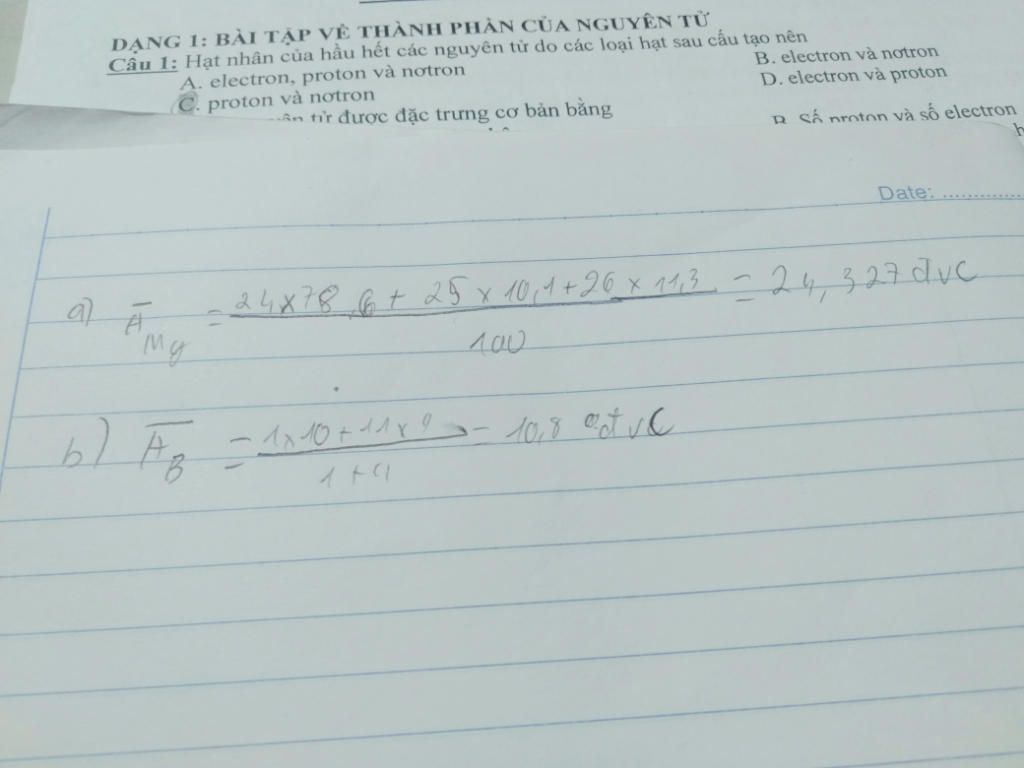 DẠNG 1: BÀI TẬP VỀ THÀNH PHẦN CỦA NGUYÊN TỬ
Câu 1: Hạt nhân của hầu hết các nguyên tử do các loại hạt sau cấu tạo nên
A. electron, proton và nơtron
B. electron và nơtron
C. proton và nơtron
D. electron và proton
tử được đặc trưng cơ bản bằng
B. Số proton và số electron
Date: ..............
a) A̅ Mg = 24x78,6 + 25 x 10,1 + 26 x 11,3 = 24,327 đvC
100
b) A̅ B = 1x10 + 11x4 = 10,8 đvC
1 + 4